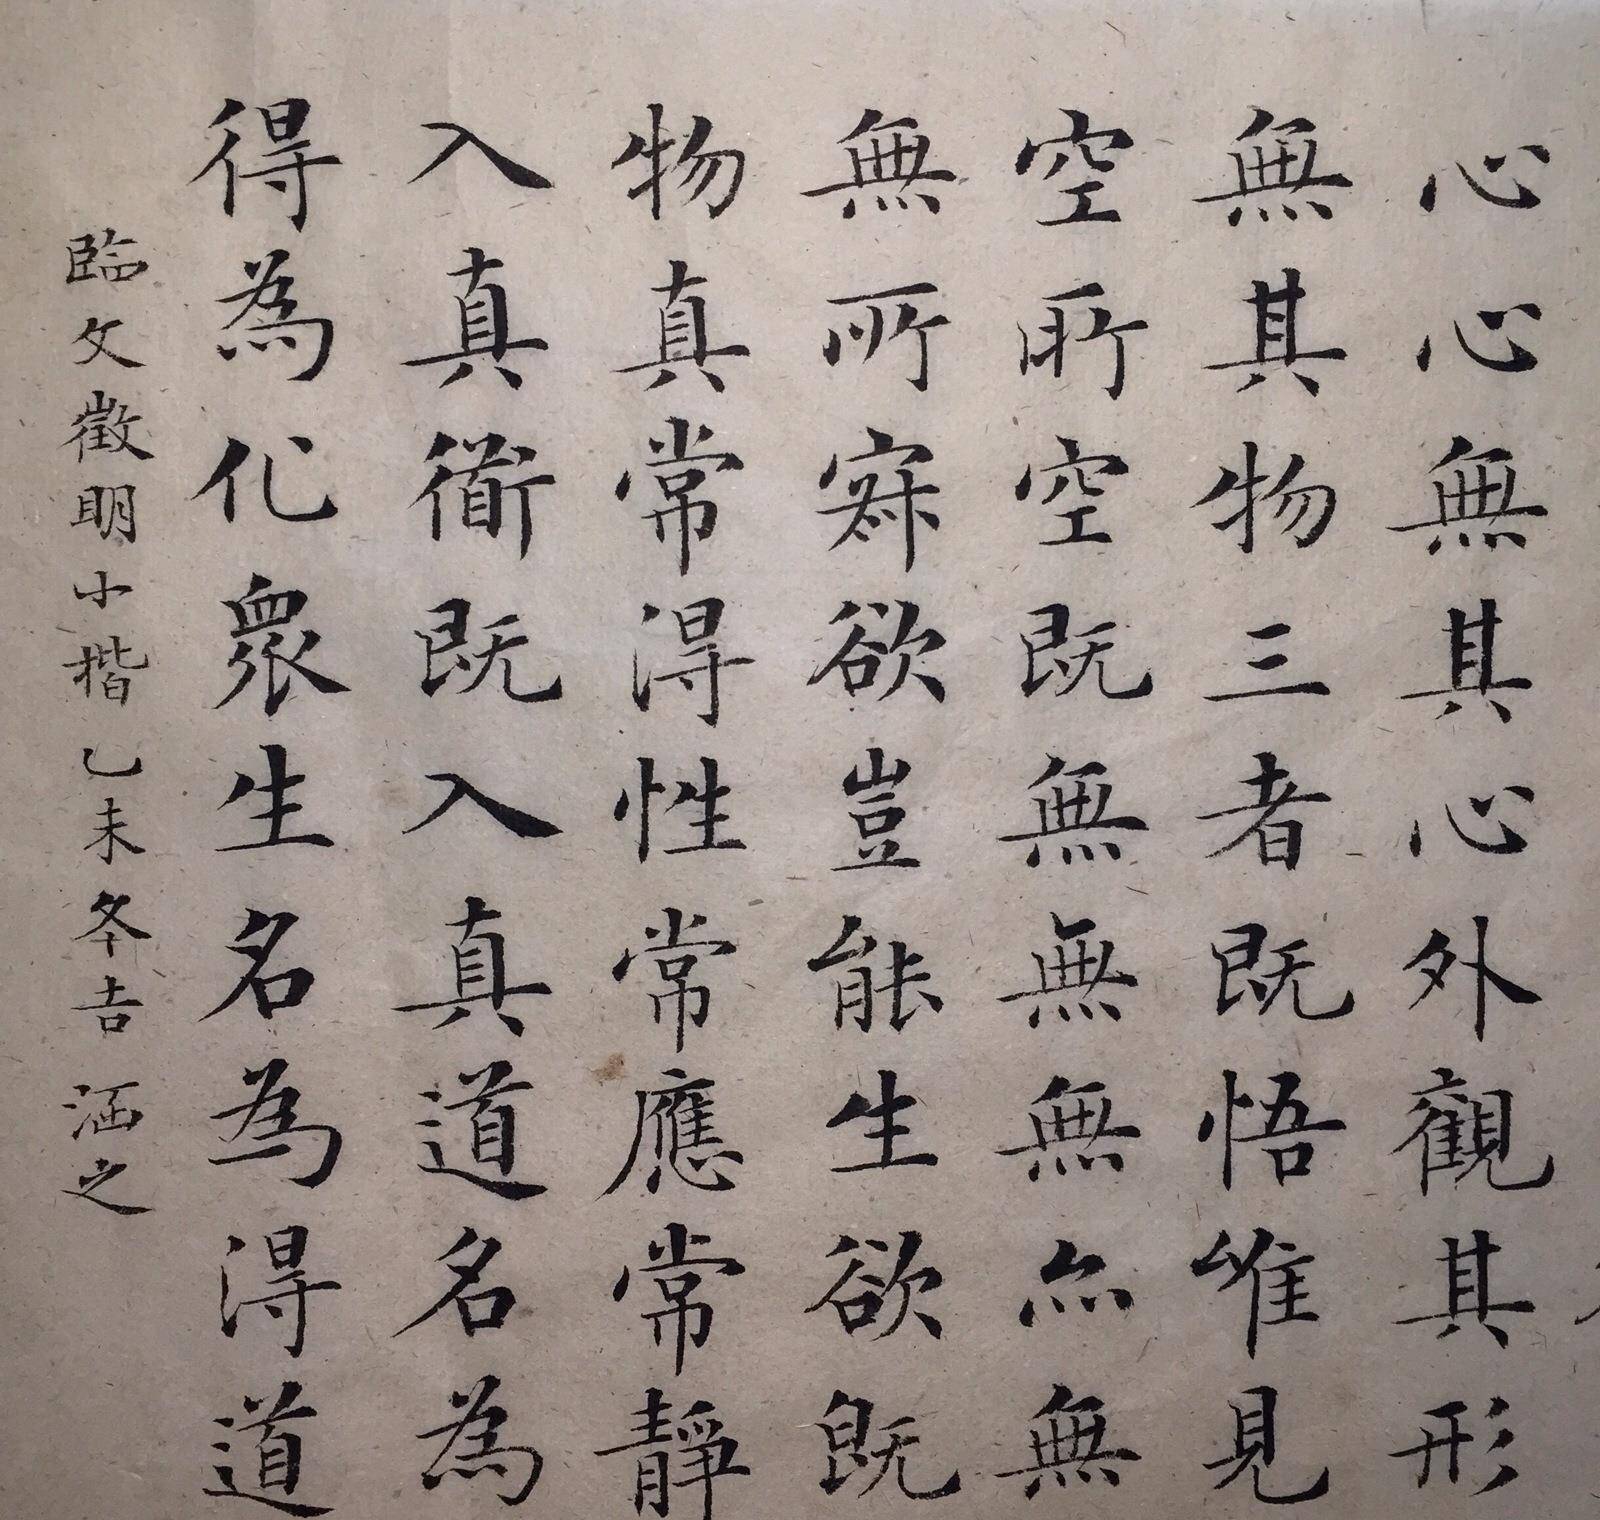 心心無其心外觀其形
無其物三者既悟唯見
空所空既無無無亦無
無所寂欲豈能生欲既
物真常得性常應常靜
入真衜既入真道名為
得為化眾生名為得道
臨文徵明小楷乙未冬吉 洒之